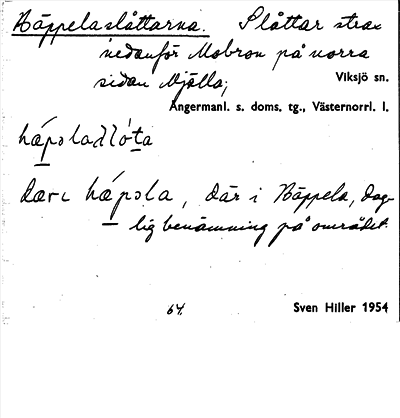 Häppelaslåttarna. Slåttar strax
nedanför Mobron på norra
sidan Mjälla;
Viksjö sn.
Ångermanl. s. doms. tg., Västernorrl. l.
där i Häppela, dag-
lig benämning på området.
64.
Sven Hiller 1954